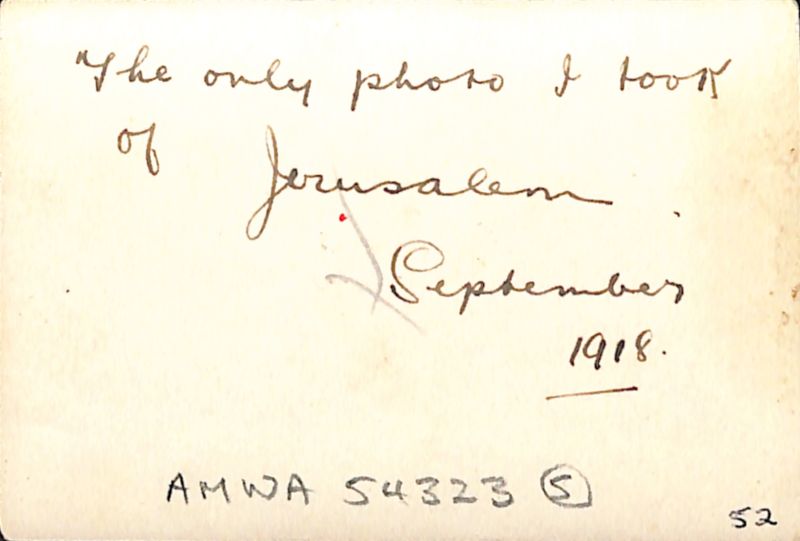 "The only photo I took
of Jerusalem
September
1918.
AMWA 54323 5
52